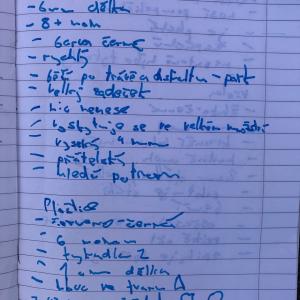 - 6mm délka
- 8 + noh
- barva černá
- rychlý
- běží po trávě a asfaltu - park
- velký zadeček
- nic nenese
- vyskytuje se ve velkém množství
- vysoký 4 mm
- přátelský
- hledá potravu
Ploštice
- červeno-černá
- 6 nohou
- tykadla 2
- 1 cm délka
- hlava ve tvaru A